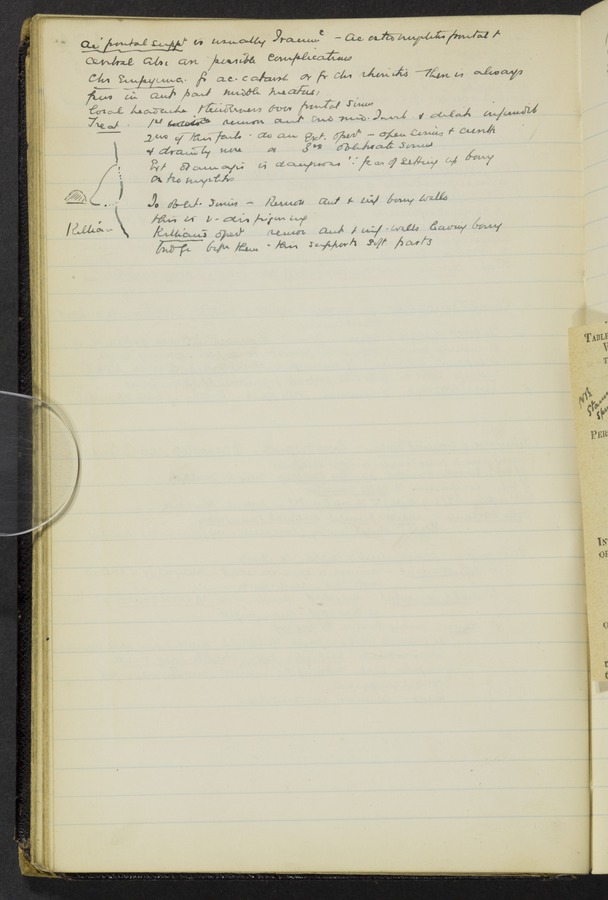 Ac frontal suppn is usually Traumc - Ac osteomyelitis frontal &
cerebral abs: are possible complications
Chr Empyema. fr ac. catarrh or fr chr rhinitis - There is always
pus in ant part middle meatus,
Local headache & tenderness over frontal sinus
Treat. 1st remove ant end mid. Turb. & dilate infundib
2nd if this fails. do an Ext. opern - open sinus & curette
& drain by nose or 3rd obliterate sinus
Ext drainage is dangerous ∵ fear of setting up bony
osteomyelitis
To oblit. sinus - Remove ant & inf bony walls
this is v. disfiguring
Killian
Killian's opern remove ant & inf. walls leaving bony
bridge betw them - this supports soft parts
TABLE
T
NB
PER
IN
OF